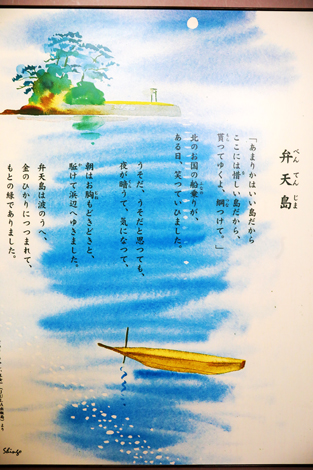 弁天島
べんてんじま
「あまりかはいい島だから
ここには惜しい島だから、
貰つてゆくよ、綱つけて。」
北のお国の船乗りが、
ある日、笑つていひました。
うそだ、うそだと思つても、
夜が暗うて、気になつて、
朝はお胸もどきどきと、
駈けて浜辺へゆきました。
弁天島は波のうへ、
金のひかりにつつまれて、
もとの緑でありました。
Shingo